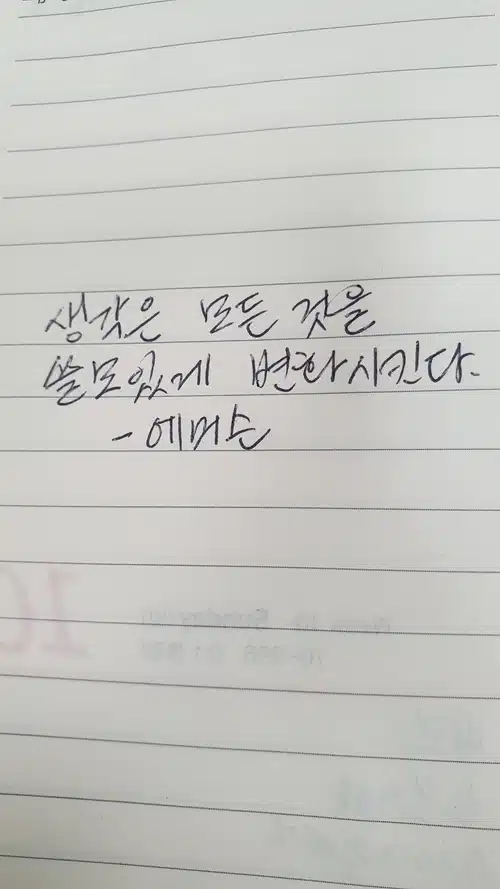 생각은 모든 것을
쓸모있게 변화시킨다.
- 에머슨